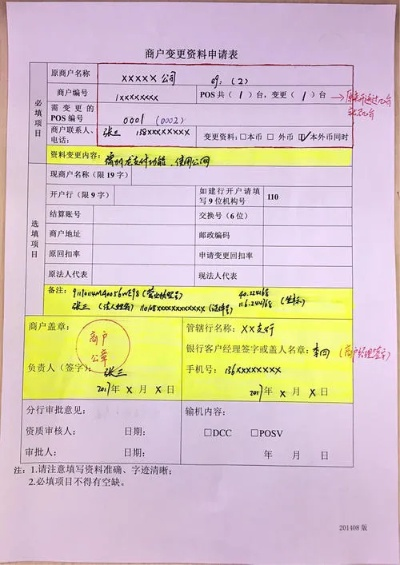 商户变更资料申请表
必填项目
原商户名称 XXXXX公司 (2)
商户编号 1XXXXXXXX POS共(1)台,变更(1)台
需变更的POS编号 0001 (0002)
商户联系人、电话: 张三 138XXXXXXXX 变更资料:□本币 □外币 本外币同时
资料变更内容:
选填项目
现商户名称(限19字)
开户行(限9字) 如建行开户请填写9位机构号 110
结算账号 交换号(6位)
商户地址 邮政编码
原回扣率 申请变更回扣率
原法人代表 现法人代表
备注:
张三
商户盖章: 商户公章
负责人(签字): 张三
2017年 X 月 X 日
管辖行名称: XX支行
银行客户经理签字或盖人名章: 李四 (客户经理签字)
手机号: 136XXXXXXXX
2017年 X 月 X 日
分行审批意见:
资质审核人: 日期:
审批人: 日期:
输机内容:
□DCC □POSV
年 月 日
注:1.请注意填写资料准确、字迹清晰;
2.必填项目不得有空缺。
201408版